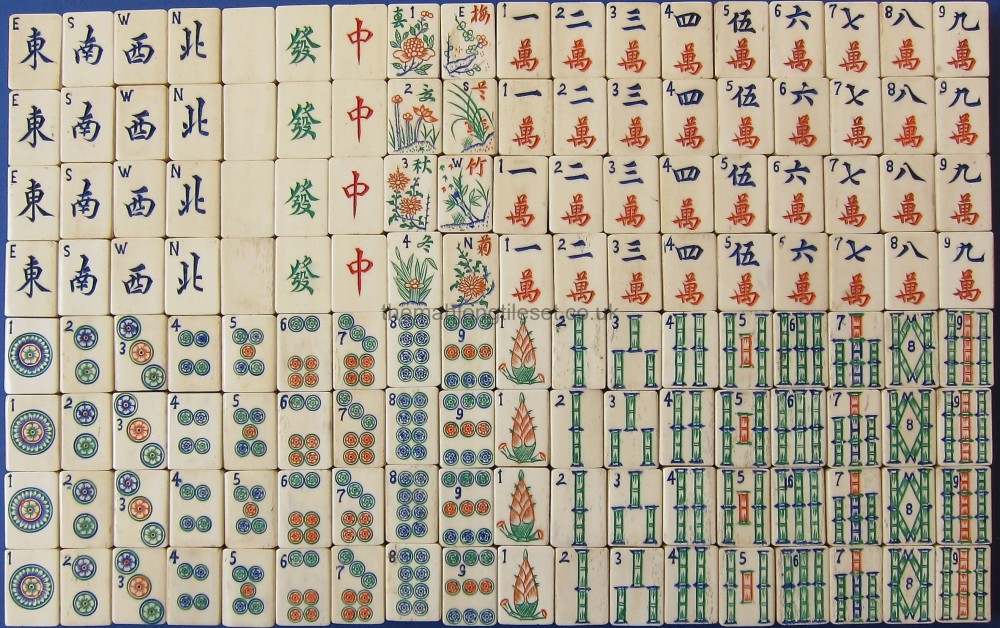 E 東 S 南 W 西 N 北 發 中 春 1 E 梅 1 一 萬 2 二 萬 3 三 萬 4 四 萬 5 伍 萬 6 六 萬 7 七 萬 8 八 萬 9 九 萬
E 東 S 南 W 西 N 北 發 中 2 S 1 一 萬 2 二 萬 3 三 萬 4 四 萬 5 伍 萬 6 六 萬 7 七 萬 8 八 萬 9 九 萬
E 東 S 南 W 西 N 北 發 中 3 秋 W 竹 1 一 萬 2 二 萬 3 三 萬 4 四 萬 5 伍 萬 6 六 萬 7 七 萬 8 八 萬 9 九 萬
E 東 S 南 W 西 N 北 發 中 4 冬 N 菊 1 一 萬 2 二 萬 3 三 萬 4 四 萬 5 伍 萬 6 六 萬 7 七 萬 8 八 萬 9 九 萬
themahjongtileset.co.uk
1 2 3 4 5 6 7 8 9 1 2 3 4 5 6 7 8 9
1 2 3 4 5 6 7 8 9 1 2 3 4 5 6 7 8 9
1 2 3 4 5 6 7 8 9 1 2 3 4 5 6 7 8 9
1 2 3 4 5 6 7 8 9 1 2 3 4 5 6 7 8 9